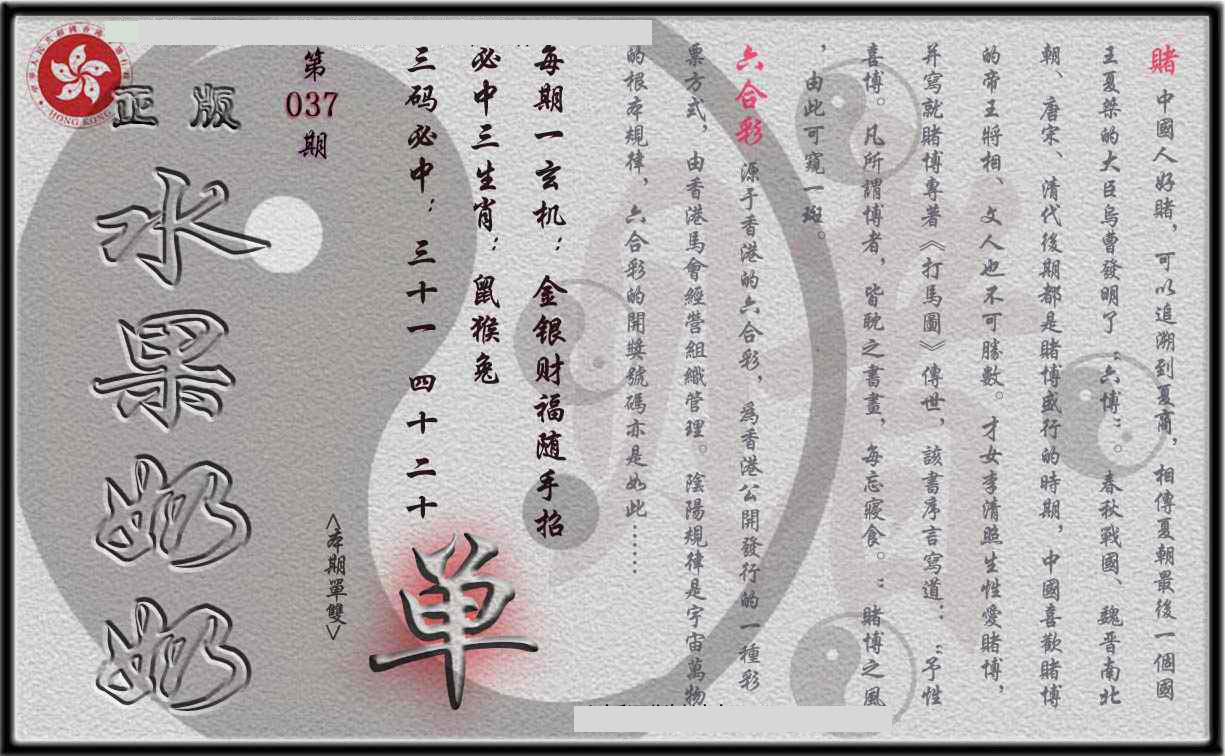 賭 中國人好賭，可以追溯到夏商，相傳夏朝最後一個國
王夏桀的大臣烏曹發明了“六博”。春秋戰國、魏晋南北
朝、唐宋、清代後期都是賭博盛行的時期，中國喜歡賭博
的帝王將相、文人也不可勝數。才女李清照生性愛賭博，
并寫就賭博專著《打馬圖》傳世，該書序言寫道：“予性
喜博。凡所謂博者，皆耽之晝畫，每忘寢食。”賭博之風
，由此可窺一斑。
六合彩 源于香港的六合彩，爲香港公開發行的一種彩
票方式，由香港馬會經營組織管理。陰陽規律是宇宙萬物
的根本規律，六合彩的開獎號碼亦是如此……
每期一玄机：金银财福随手招
必中三生肖：鼠猴兔
三码必中：三十一 四十二 十
单
<本期單雙>
第
037
期
正版
水果奶奶
HONG KONG